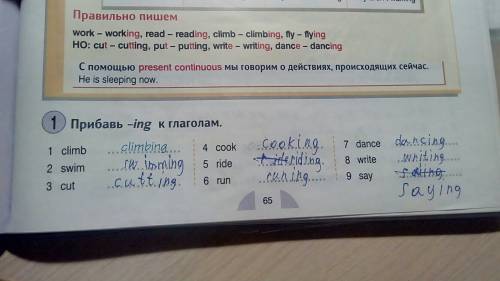 Правильно пишем
work – working, read – reading, climb – climbing, fly – flying
НО: cut – cutting, put – putting, write – writing, dance – dancing
С помощью present continuous мы говорим о действиях, происходящих сейчас.
He is sleeping now.
1 Прибавь –ing к глаголам.
1 climb climbing
2 swim swimming
3 cut cutting
4 cook cooking
5 ride riding
6 run runing
7 dance dansing
8 write writing
9 say
saying
65